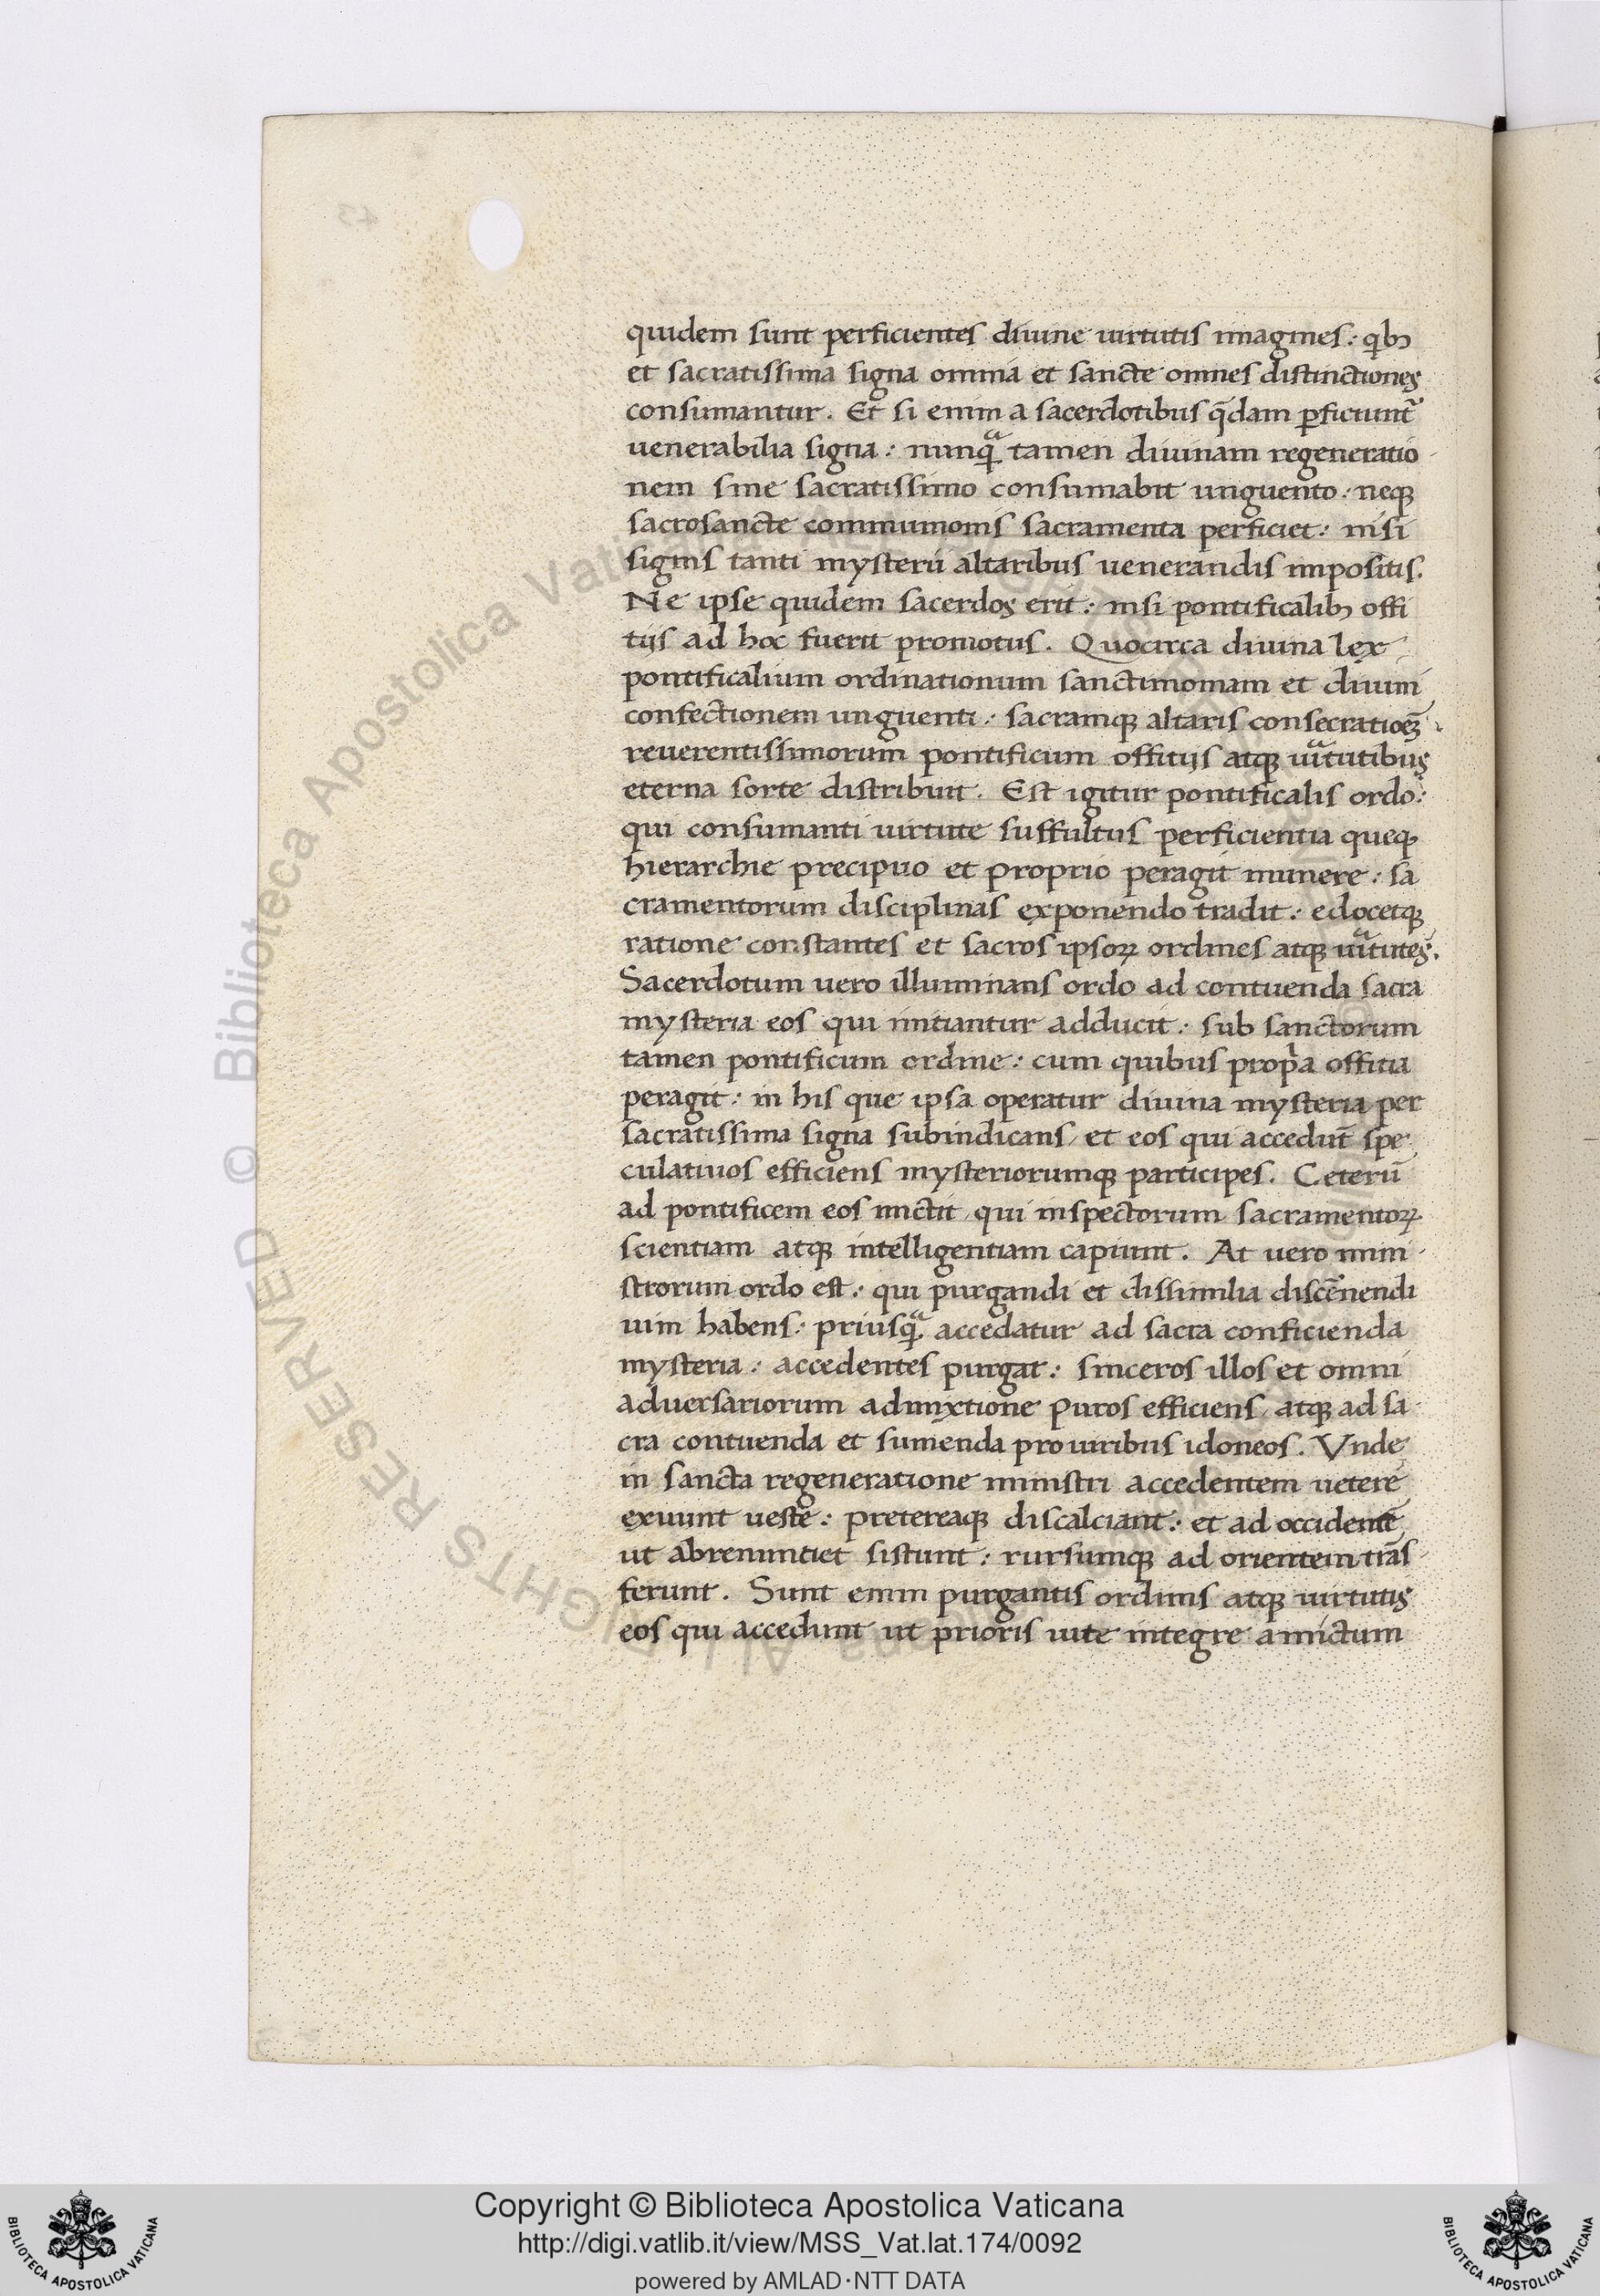 quidem sunt perficientes diuine uirtutis imagines: qibꝫ
et sacratissima signa omnia et sancte omnes distinctiones
consumantur. Et si enim a sacerdotibus q̄dam ꝑficiunt᷑
uenerabilia signa: nunqͣ tamen diuinam regeneratio
nem sine sacratissimo consumabit unguento: neqꝫ
sacrosancte communionis sacramenta perficiet: nisi
signis tanti mysterii altaribus uenerandis impositis.
Ne ipse quidem sacerdos erit: nisi pontificalibꝫ offi
tijs ad hoc fuerit promotus. Quocirca diuina lex
pontificalium ordinationum sanctimoniam et diuini
confectionem unguenti: sacramqꝫ altaris consecratioēꝫ
reuerentissimorum pontificum offitijs atqꝫ uͥtutibus
eterna sorte distribuit. Est igitur pontificalis ordo:
qui consumanti uirtute suffultus perficientia queqꝫ
hierarchie precipuo et proprio peragit munere: sa
cramentorum disciplinas exponendo tradit: edocetqꝫ
ratione constantes et sacros ipsoꝝ ordines atqꝫ uͥtutes.
Sacerdotum uero illuminans ordo ad contuenda sacra
mysteria eos qui initiantur adducit: sub sanctorum
tamen pontificum ordine: cum quibus propͥa offitia
peragit: in his que ipsa operatur diuina mysteria per
sacratissima signa subindicans, et eos qui accedūt spe
culatiuos efficiens mysteriorumqꝫ participes. Ceterū
ad pontificem eos mictit, qui inspectorum sacramentoꝝ
scientiam atqꝫ intelligentiam capiunt. At uero mini
strorum ordo est: qui purgandi et dissimilia discēnendi
uim habens: priusqͣ accedatur ad sacra conficienda
mysteria: accedentes purgat: sinceros illos et omni
aduersariorum admixtione puros efficiens, atqꝫ ad sa
cra contuenda et sumenda pro uiribus idoneos. Vnde
in sancta regeneratione ministri accedentem ueterē
exuunt uestē: pretereaqꝫ discalciant: et ad occidentē
ut abrenuntiet sistunt: rursumqꝫ ad orientem trās
ferunt. Sunt enim purgantis ordinis atqꝫ uirtutis
eos qui accedunt ut prioris uite integre amictum
© Biblioteca Apostolica Vaticana
ALL RIGHTS RESERVED
Copyright © Biblioteca Apostolica Vaticana
http://digi.vatlib.it/view/MSS_Vat.lat.174/0092
powered by AMLAD·NTT DATA
BIBLIOTECA APOSTOLICA VATICANA
BIBLIOTECA APOSTOLICA VATICANA